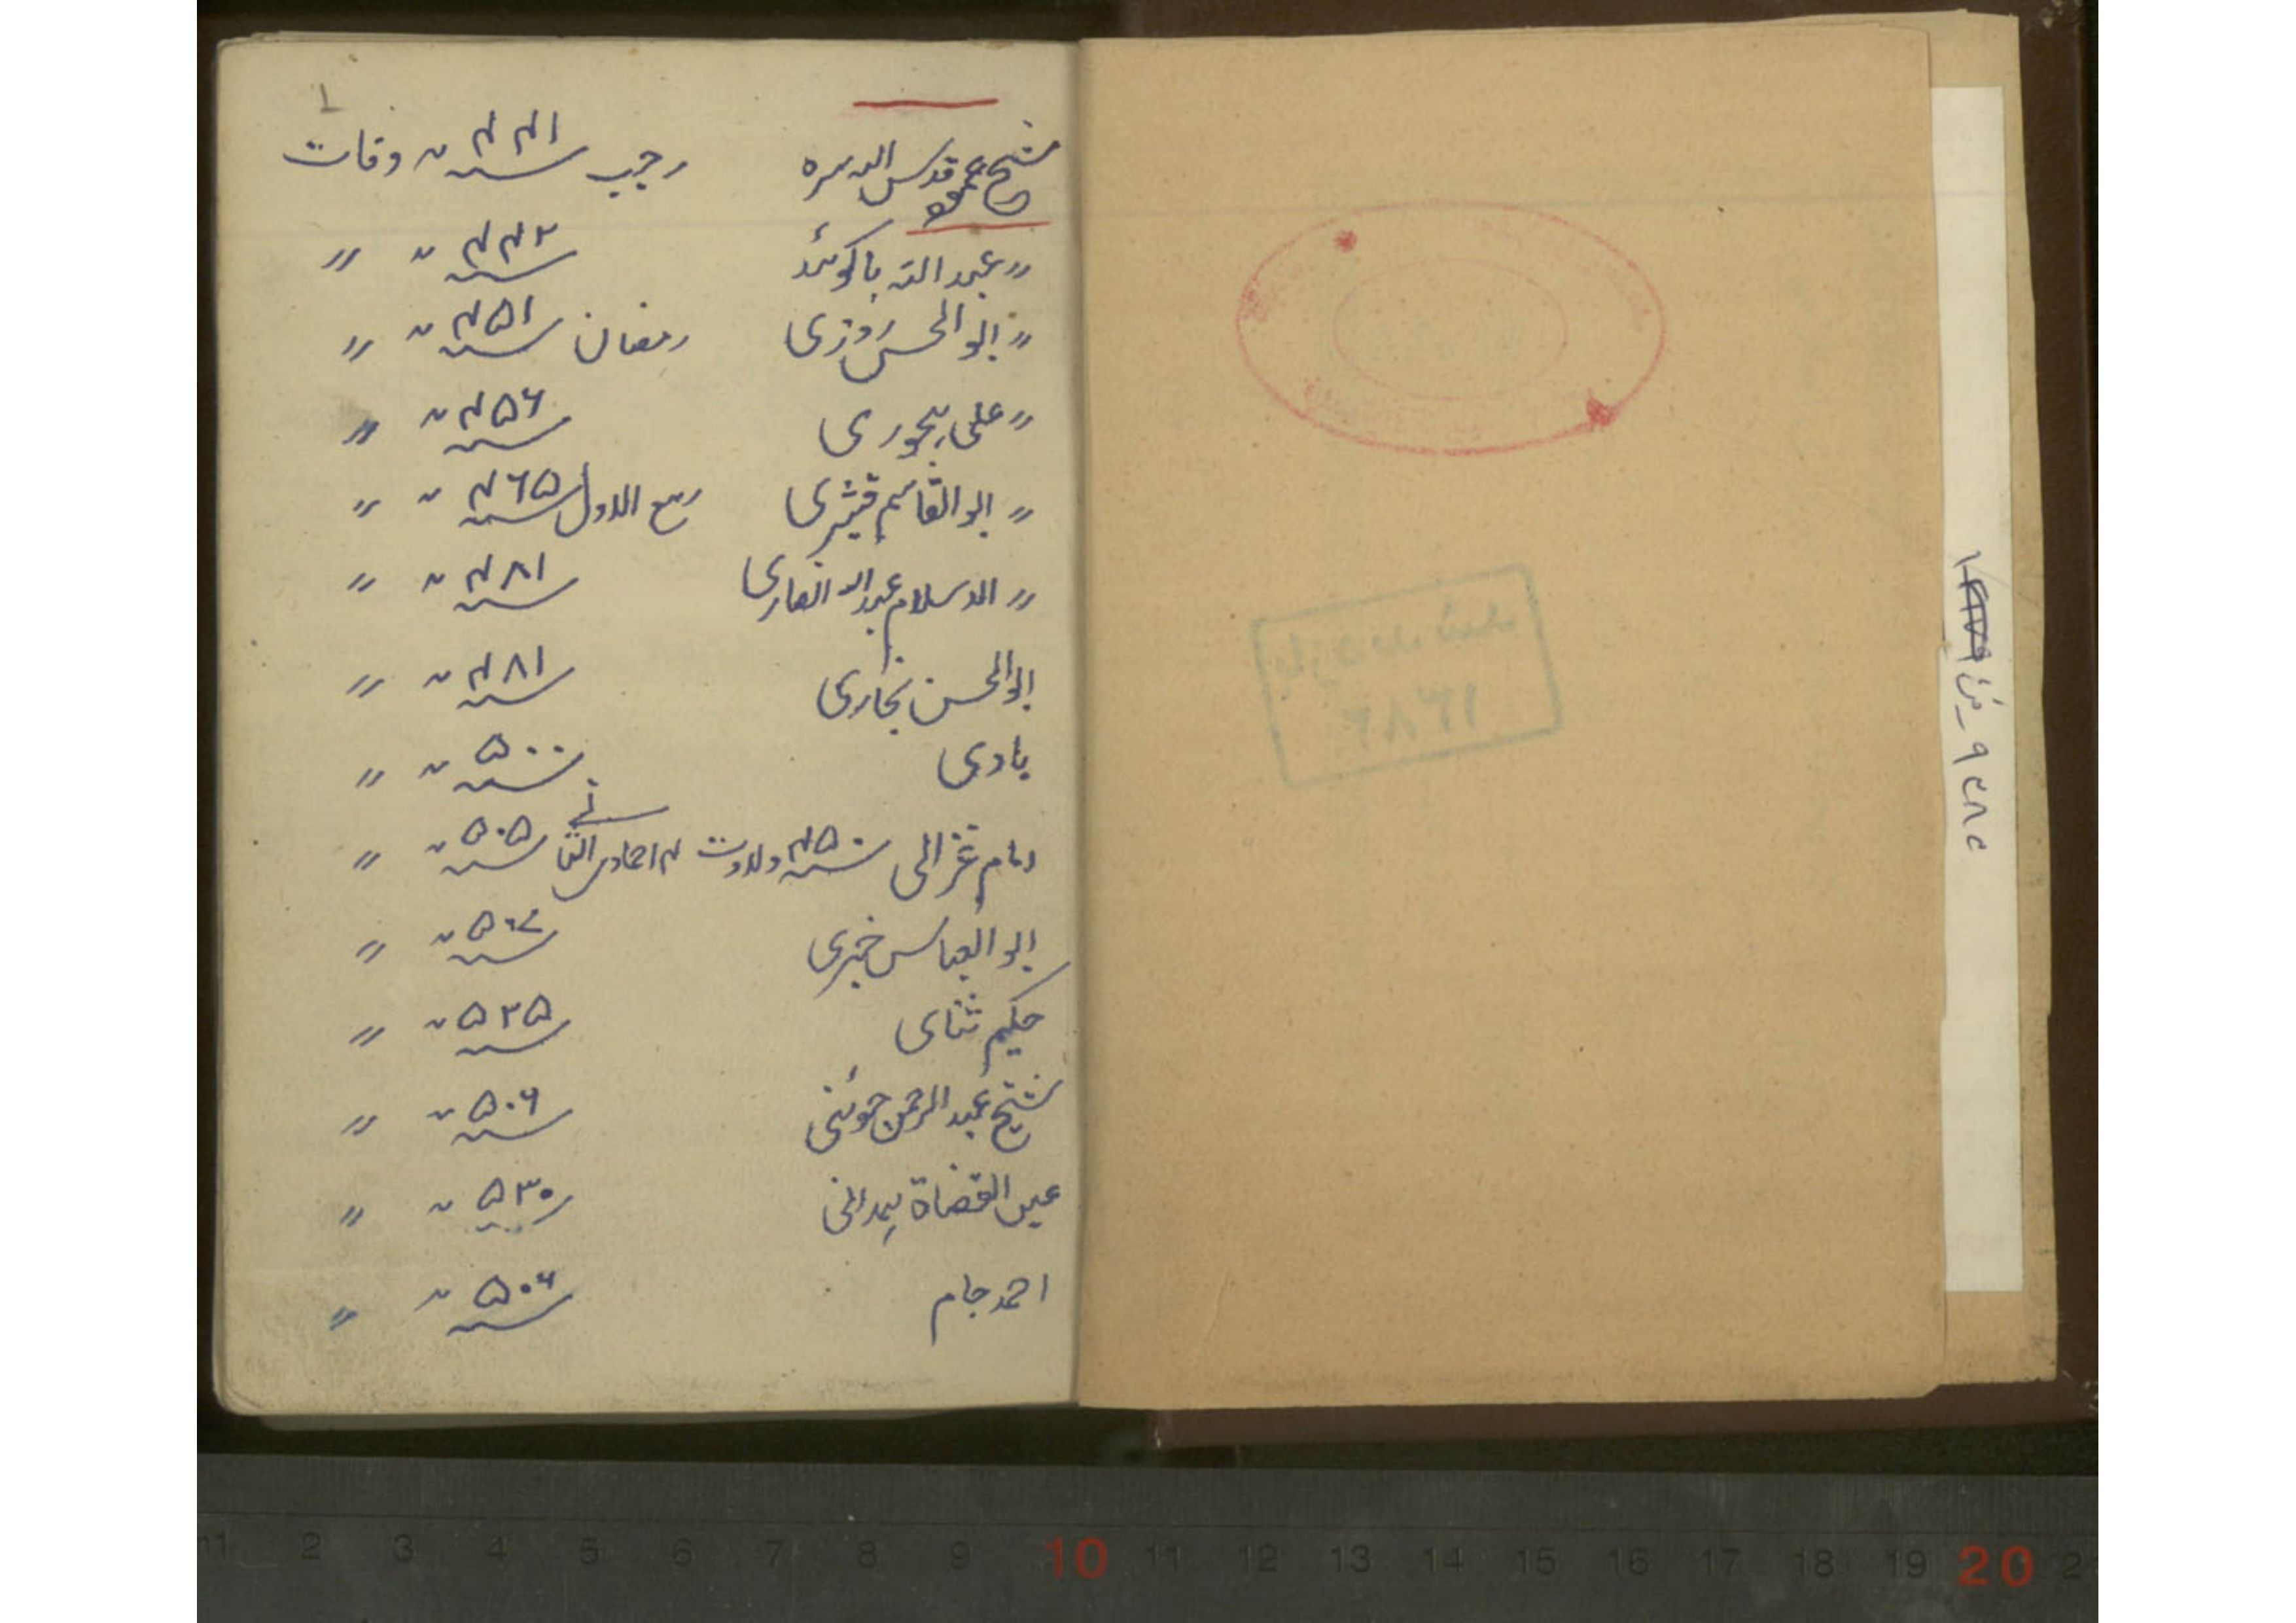 ۱
شیخ عمو قدس الله سره رجب سنه ۴۴۱ وفات
〃 عبد الله باکوئد سنه ۴۴۲ 〃 〃
〃 ابو الحسن روزی رمضان سنه ۴۵۱ 〃 〃
〃 علی ہجوری سنه ۴۵۶ 〃 〃
〃 ابو القاسم قشیری ربیع الاول سنه ۴۶۵ 〃 〃
〃 الاسلام عبد الله انصاری سنه ۴۸۱ 〃 〃
ابو الحسن نجاری سنه ۴۸۱ 〃 〃
ہادی سنه ۵۰۰ 〃 〃
امام غزالی سنه ۴۵۰ ولادت ۴ جمادی الثانی سنه ۵۰۵ 〃 〃
ابو العباس سنه 〃 〃
حکیم ثنای سنه ۵۲۵ 〃 〃
شیخ عبد الرحمن جوئنی سنه ۵۰۶ 〃 〃
عین القضاة ہمدانی ۵۳۰ 〃 〃
احمد جام سنه ۵۰۶ 〃 〃